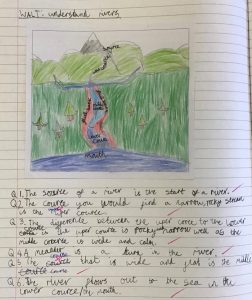 WALT: understand rivers
source
mouth
Q1. The source of a river is the start of a river.
Q2 The course you would find a narrow, rocky stream
is the upper course.
Q3. The difference between the upper corce to the lower
corce is the upper course is rocky narrow well as the
middle corce is wide and calm.
Q4 A meander is a bend in the river.
Q5 the course that is wide and flat is the middle
course
Q6 the river flows out to the sea is the
lower course/the mouth.